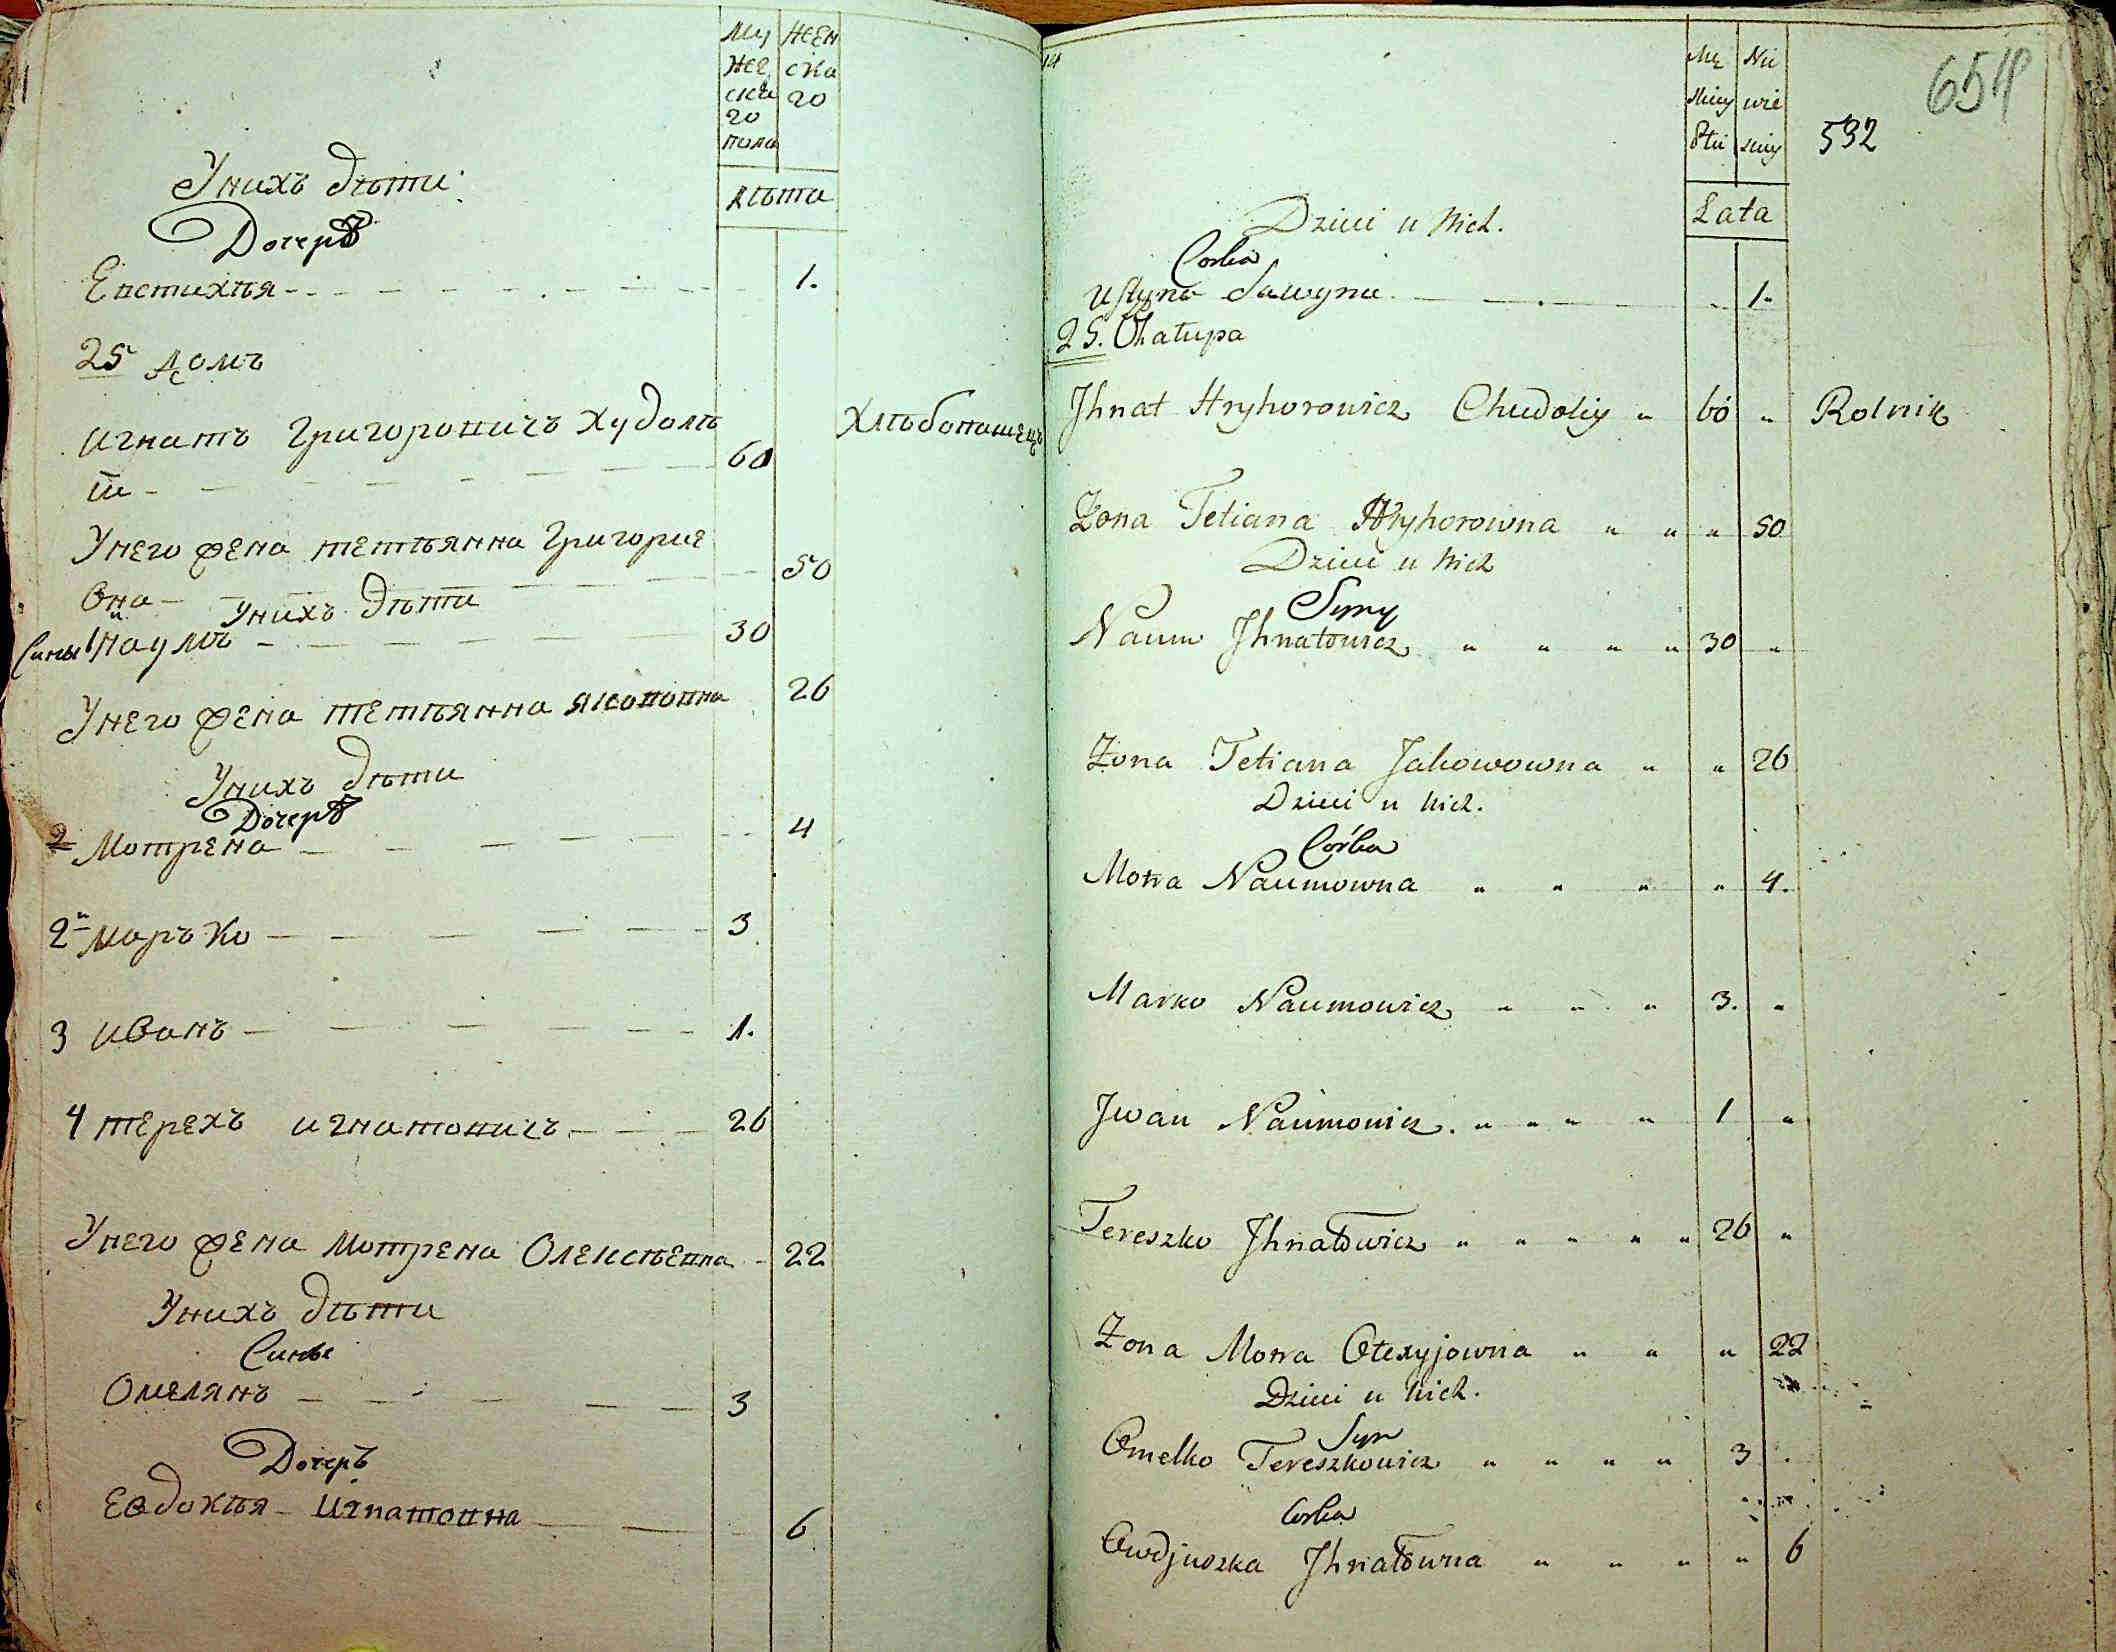 Му
жес
ска
го
пола
жен
ска
го
лѣта
Унихъ дѣти
Дочерѣ
Евстихѣя 1.
25 домъ
Игнатъ Григоровичъ Худолѣ
ш 60 Хлѣбопашецъ
Унего жена тетѣянна Григорие
вна 50
Унихъ дѣти
Сины 1й наумъ 30
Унего жена тетѣянна якововна 26
Унихъ дѣти
Дочерѣ
2 Мотрена 4
2й маръко 3
3 иванъ 1.
4 терехъ игнатовичъ 26
Унего жена мотрена Олексѣевна 22
Унихъ дѣти
Синъ
Омелянъ 3
Дочеръ
Евдокѣя Игнатовна 6
Mę
skiey
Płci
Nie
wie
sciey
654
532
Lata
Dzieci u nich.
Corka
Ustyna Sawyna 1.
25. Chałupa
Jhnat Hryhorowicz Chudoliy 60 Rolnik
Żona Tetiana Hryhorowna 50
Dzieci u nich
Syny
Naum Jhnatowicz 30
Żona Tetiana Jakowowna 26
Dzieci u nich.
Córka
Motra Naumowna 4.
Marko Naumowicz 3.
Jwan Naumowicz 1
Tereszko Jhnatowicz 26
Żona Motra Ołexyjowna 22
Dzieci u nich.
Syn
Omelko Tereszkowicz 3
Corka
Owdjuszka Jhnatowna 6